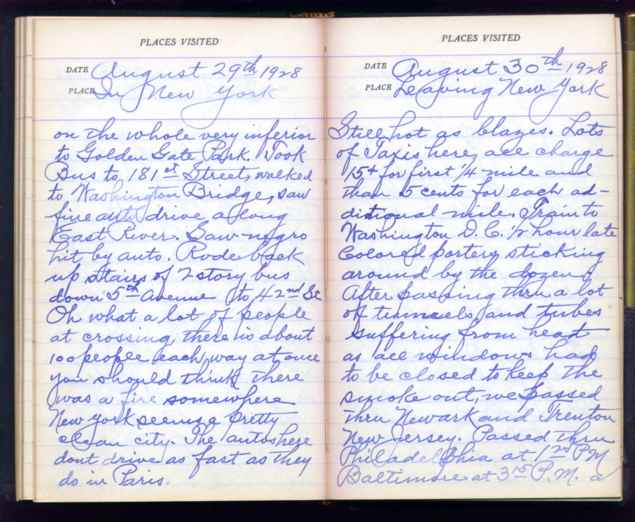 PLACES VISITED
DATE August 29th 1928
PLACE In New York
on the whole very inferior
to Golden Gate Park. Took
Bus to 181st Street, walked
to Washington Bridge, saw
fine auto drive along
East River. Saw negro
hit by auto. Rode back
up stairs of 2 story bus
down 5th Avenue to 42nd St.
Oh what a lot of people
at crossing, there is about
100 people each way at once
you should think there
was a fire somewhere
New York seems a pretty
clean city. The autos here
dont drive as fast as they
do in Paris.
PLACES VISITED
DATE August 30th 1928
PLACE Leaving New York
Still hot as blazes. Lots
of Taxis here, all charge
15¢ for first 1/4 mile and
than 5 cents for each ad-
ditional mile. Train to
Washington D.C. 1/2 hour late
Colored porters sticking
around by the dozens
After passing thru a lot
of tunnels and tubes
suffering from heat
as all windows had
to be closed to keep the
smoke out, we passed
thru Newark and Trenton
New Jersey. Passed thru
Philadelphia at PM
Baltimore at 3 15 P.M. a